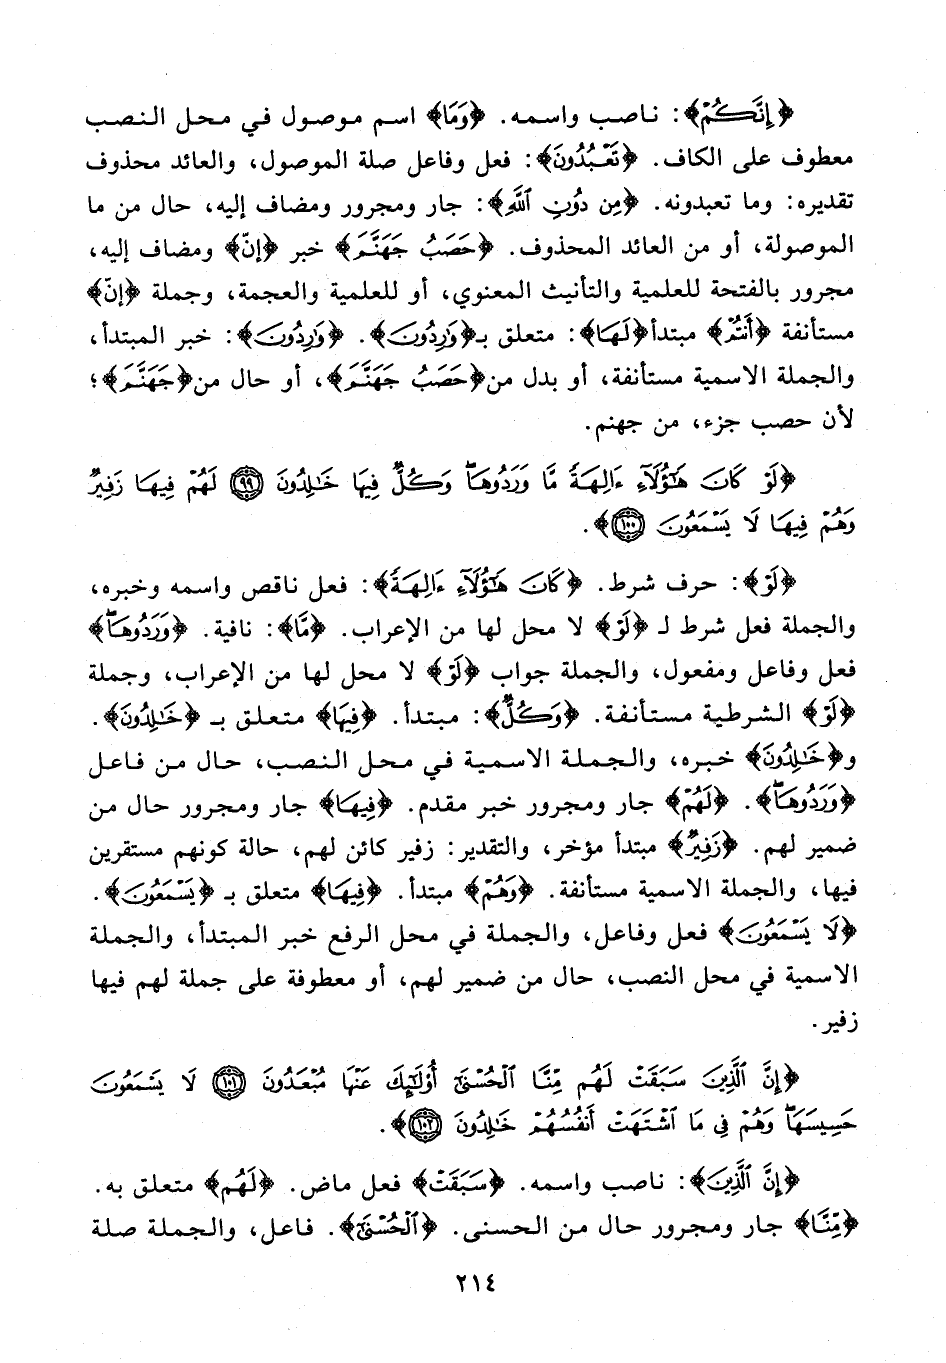 ﴿إِنَّكُمْ﴾: ناصب واسمه. ﴿وَمَا﴾ اسم موصول في محل النصب
معطوف على الكاف. ﴿تَعْبُدُونَ﴾: فعل وفاعل صلة الموصول، والعائد محذوف
تقديره: وما تعبدونه. ﴿مِن دُونِ ٱللَّهِ﴾: جار ومجرور ومضاف إليه، حال من ما
الموصولة، أو من العائد المحذوف. ﴿حَصَبُ جَهَنَّمَ﴾ خبر ﴿إنّ﴾ ومضاف إليه،
مجرور بالفتحة للعلمية والتأنيث المعنوي، أو للعلمية والعجمة، وجملة ﴿إنّ﴾
مستأنفة ﴿أَنتُمْ﴾ مبتدأ ﴿لَهَا﴾: متعلق بـ﴿وَٰرِدُونَ﴾. ﴿وَٰرِدُونَ﴾: خبر المبتدأ،
والجملة الاسمية مستأنفة، أو بدل من ﴿حَصَبُ جَهَنَّمَ﴾، أو حال من ﴿جَهَنَّمَ﴾؛
لأن حصب جزء، من جهنم.
﴿لَوْ كَانَ هَٰٓؤُلَآءِ ءَالِهَةً مَّا وَرَدُوهَا ۖ وَكُلٌّ فِيهَا خَٰلِدُونَ ﴿٩٩﴾ لَهُمْ فِيهَا زَفِيرٌ
وَهُمْ فِيهَا لَا يَسْمَعُونَ ﴿١٠٠﴾﴾.
﴿لَوْ﴾: حرف شرط. ﴿كَانَ هَٰٓؤُلَآءِ ءَالِهَةً﴾: فعل ناقص واسمه وخبره،
والجملة فعل شرط لـ ﴿لَوْ﴾ لا محل لها من الإعراب. ﴿مَّا﴾: نافية. ﴿وَرَدُوهَا ۖ﴾
فعل وفاعل ومفعول، والجملة جواب ﴿لَوْ﴾ لا محل لها من الإعراب، وجملة
﴿لَوْ﴾ الشرطية مستأنفة. ﴿وَكُلٌّ﴾: مبتدأ. ﴿فِيهَا﴾ متعلق بـ ﴿خَٰلِدُونَ﴾.
و﴿خَٰلِدُونَ﴾ خبره، والجملة الاسمية في محل النصب، حال من فاعل
﴿وَرَدُوهَا ۖ﴾. ﴿لَهُمْ﴾ جار ومجرور خبر مقدم. ﴿فِيهَا﴾ جار ومجرور حال من
ضمير لهم. ﴿زَفِيرٌ﴾ مبتدأ مؤخر، والتقدير: زفير كائن لهم، حالة كونهم مستقرين
فيها، والجملة الاسمية مستأنفة. ﴿وَهُمْ﴾ مبتدأ. ﴿فِيهَا﴾ متعلق بـ ﴿يَسْمَعُونَ﴾.
﴿لَا يَسْمَعُونَ﴾ فعل وفاعل، والجملة في محل الرفع خبر المبتدأ، والجملة
الاسمية في محل النصب، حال من ضمير لهم، أو معطوفة على جملة لهم فيها
زفير.
﴿إِنَّ ٱلَّذِينَ سَبَقَتْ لَهُم مِّنَّا ٱلْحُسْنَىٰٓ أُو۟لَٰٓئِكَ عَنْهَا مُبْعَدُونَ ﴿١٠١﴾ لَا يَسْمَعُونَ
حَسِيسَهَا ۖ وَهُمْ فِى مَا ٱشْتَهَتْ أَنفُسُهُمْ خَٰلِدُونَ ﴿١٠٢﴾﴾.
﴿إِنَّ ٱلَّذِينَ﴾: ناصب واسمه. ﴿سَبَقَتْ﴾ فعل ماض. ﴿لَهُم﴾ متعلق به.
﴿مِّنَّا﴾ جار ومجرور حال من الحسنى. ﴿ٱلْحُسْنَىٰٓ﴾. فاعل، والجملة صلة
٢١٤